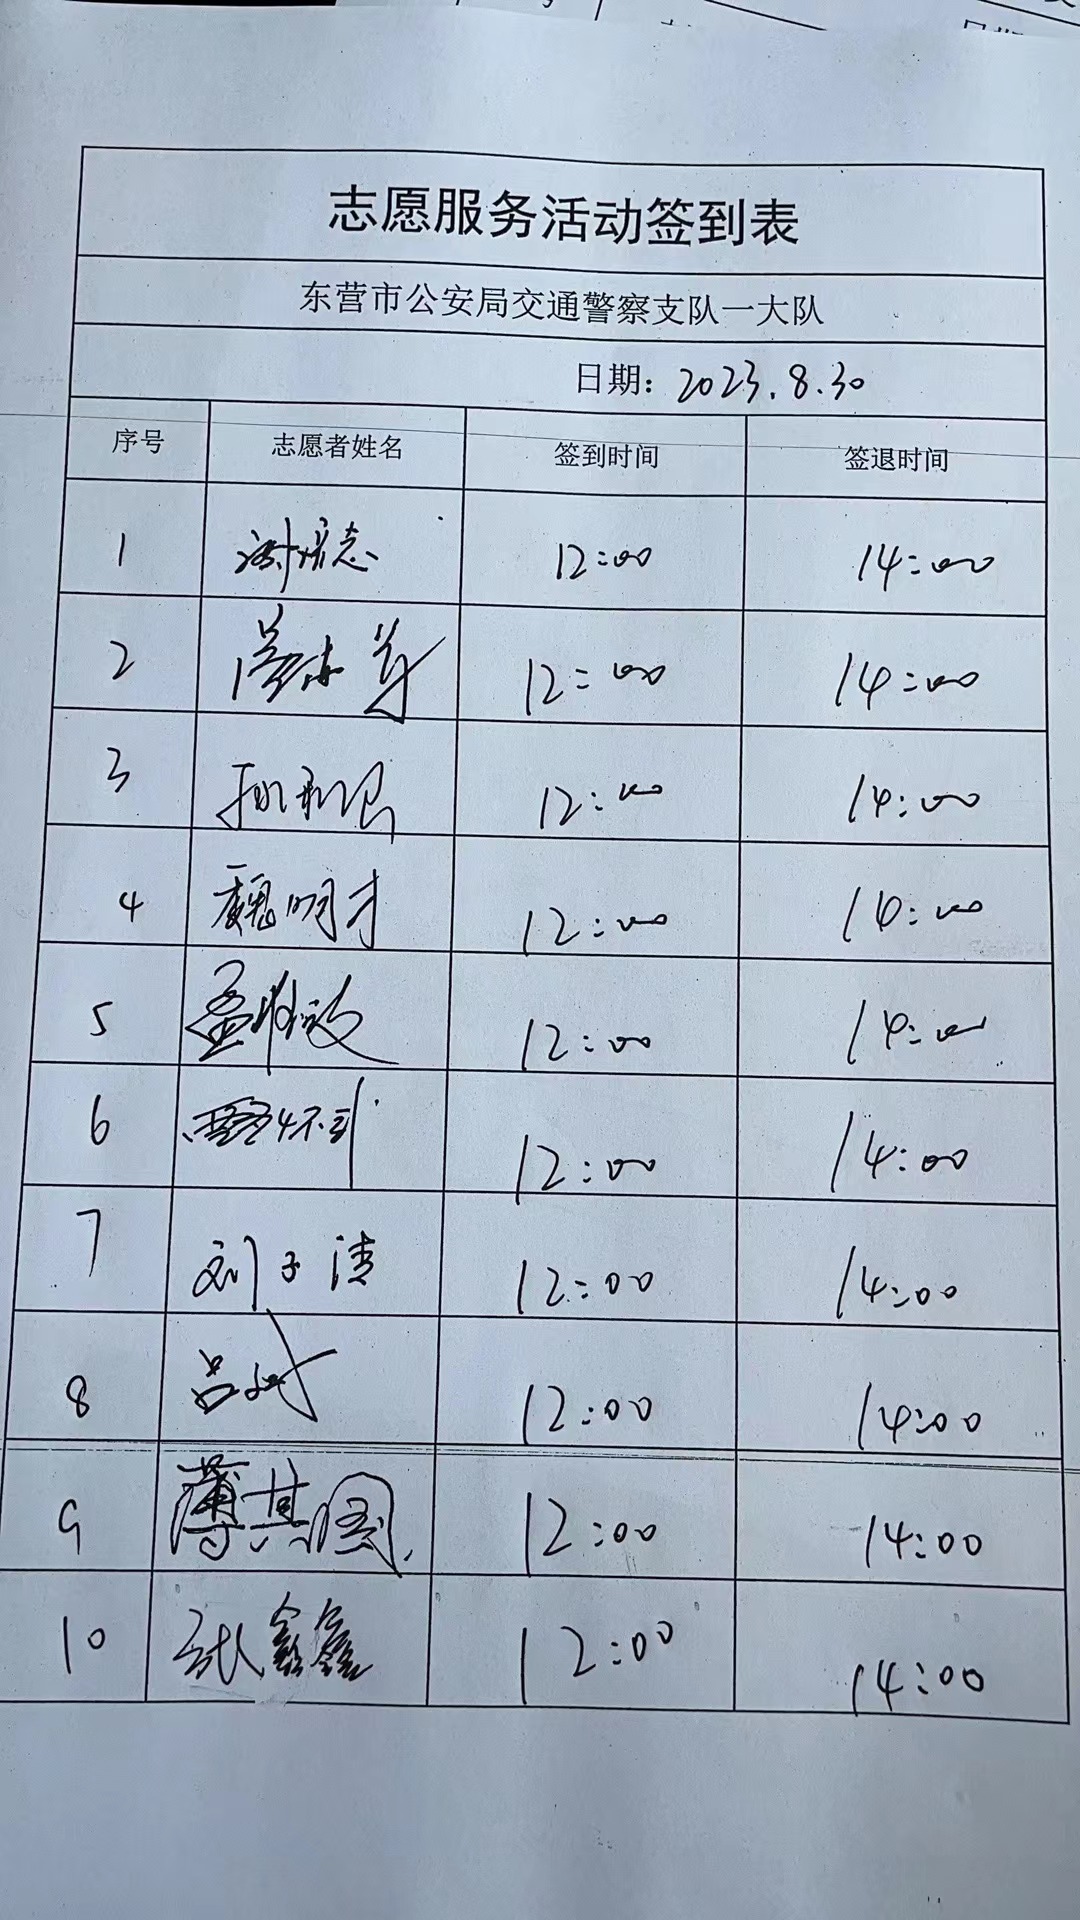 志愿服务活动签到表
东营市公安局交通警察支队一大队
日期：2023.8.30
序号 志愿者姓名 签到时间 签退时间
1 12:00 14:00
2 12:00 14:00
3 12:00 14:00
4 魏明才 12:00 14:00
5 12:00 14:00
6 12:00 14:00
7 刘子清 12:00 14:00
8 吕斌 12:00 14:00
9 薄其国 12:00 14:00
10 张鑫鑫 12:00 14:00